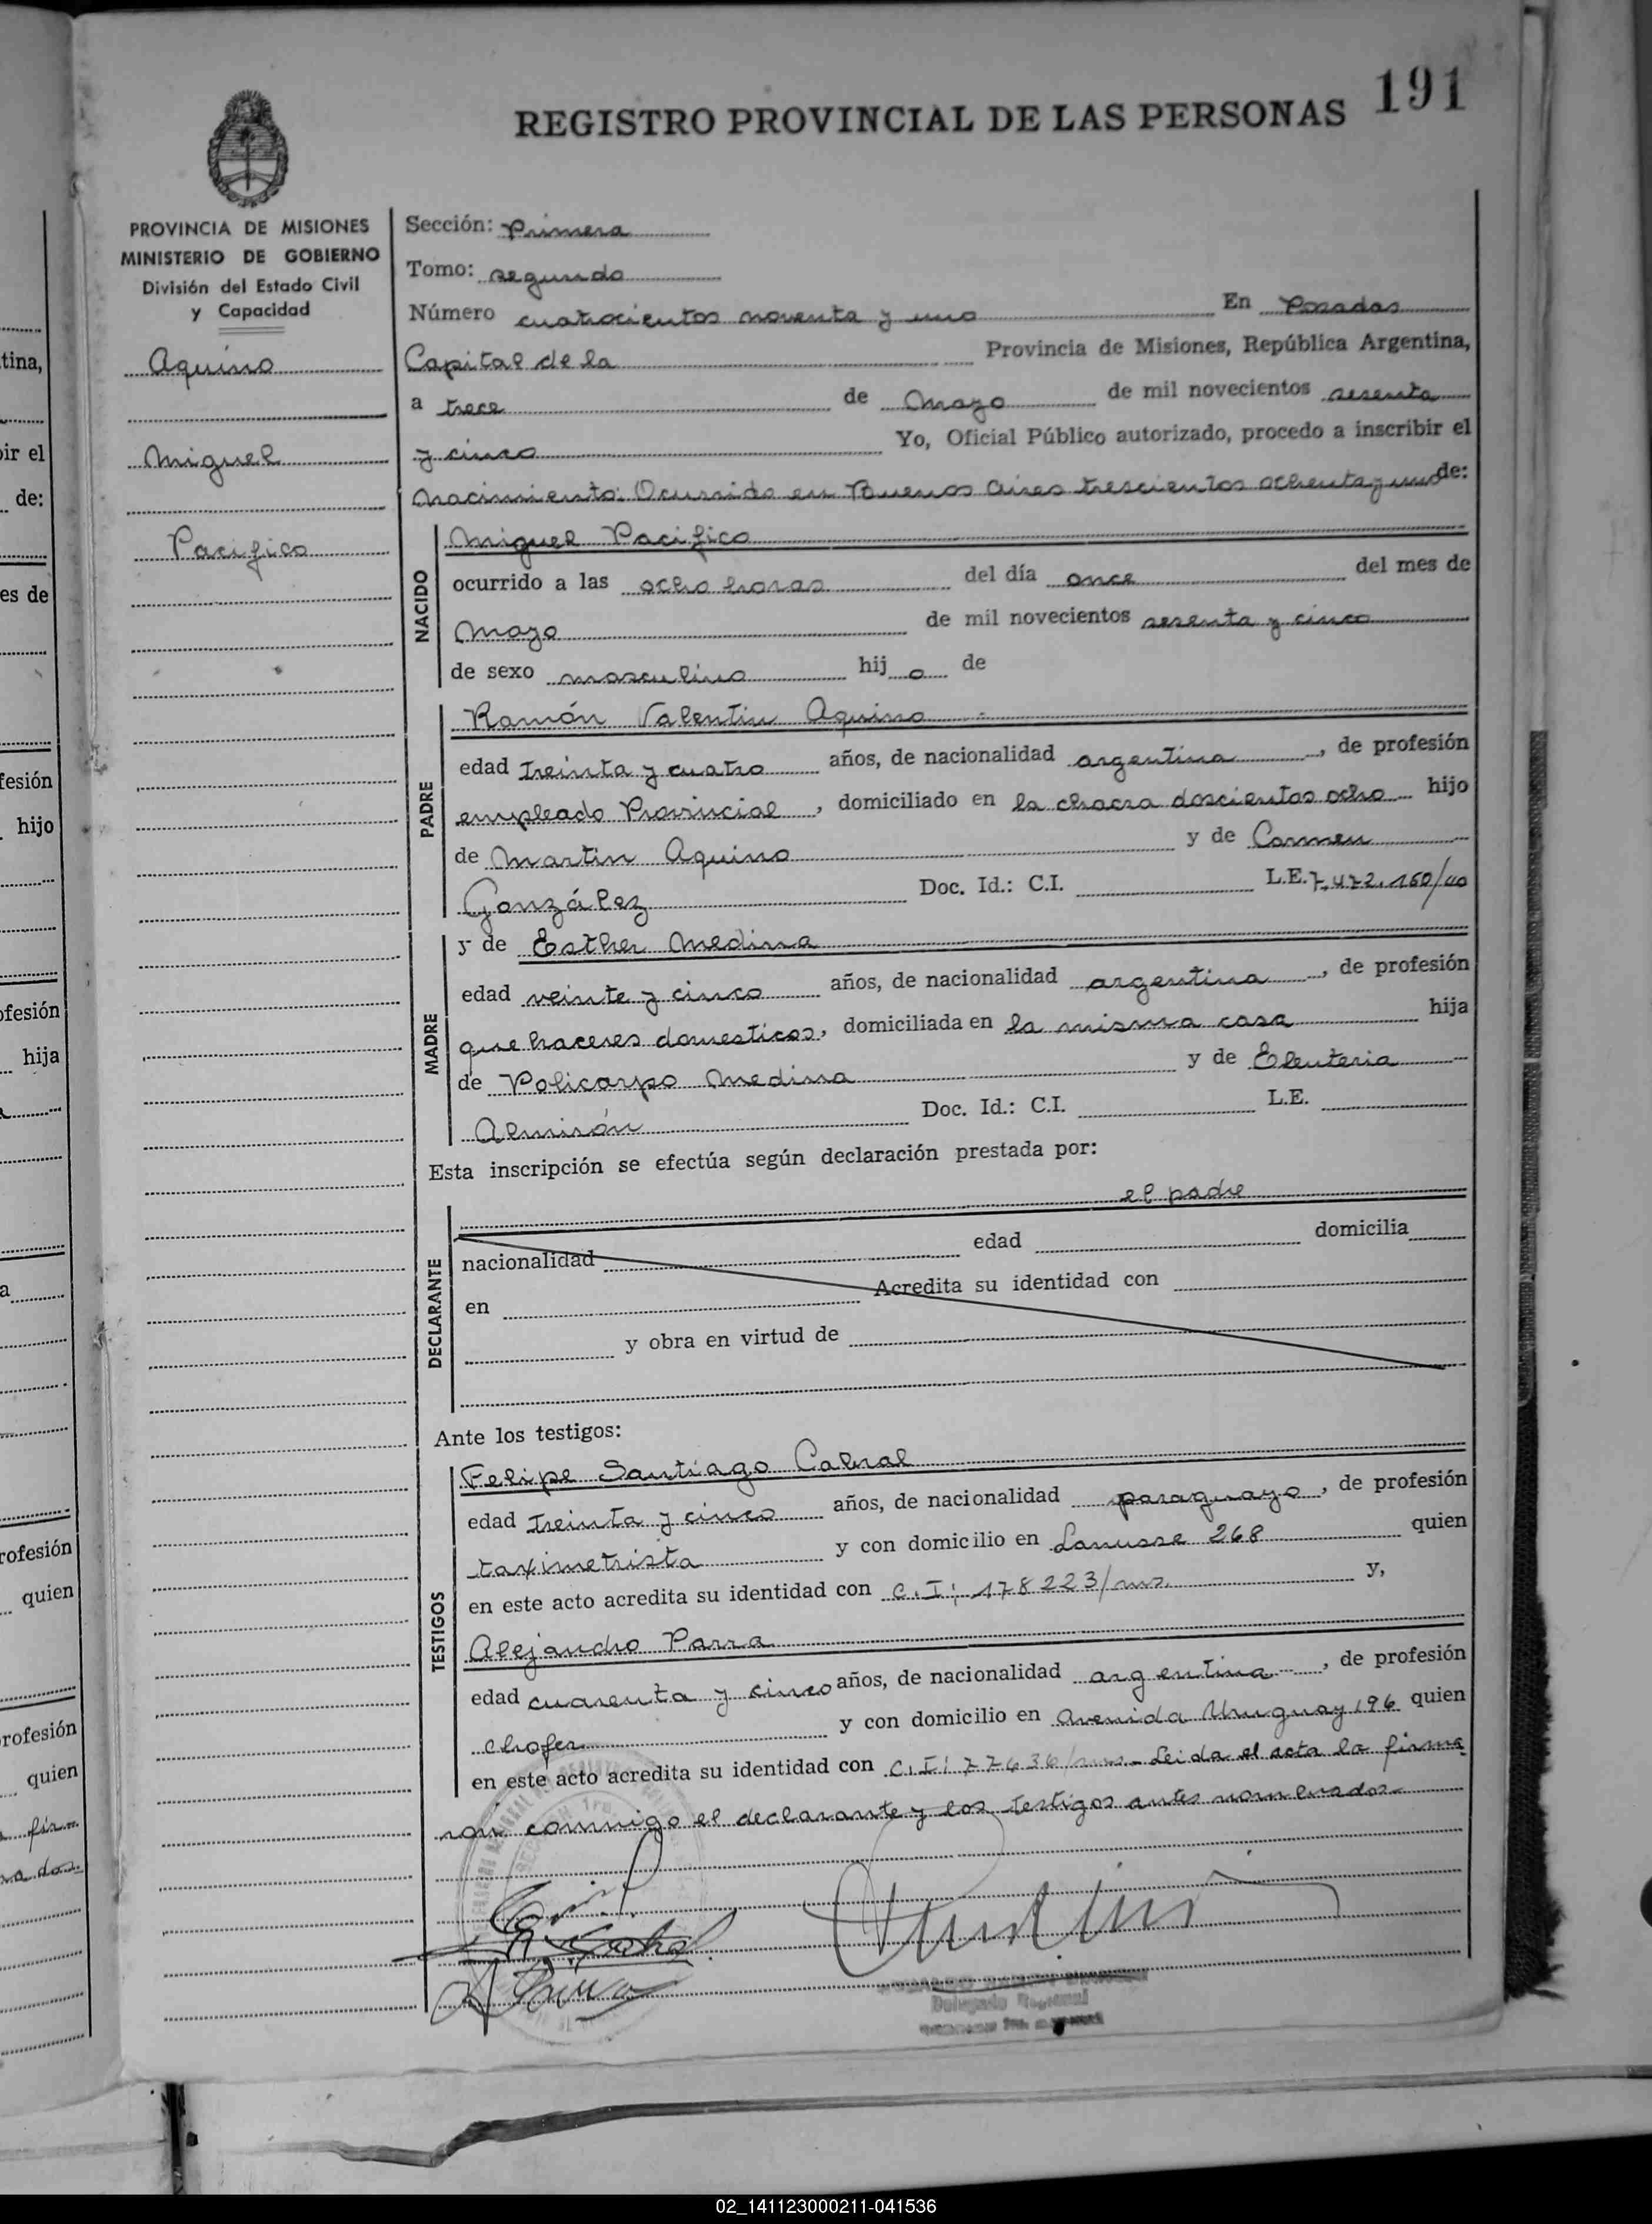 191
REGISTRO PROVINCIAL DE LAS PERSONAS
PROVINCIA DE MISIONES
MINISTERIO DE GOBIERNO
División del Estado Civil
y Capacidad
Aquino
Miguel
Pacifico
Sección: Primera
Tomo: segundo
Número cuatrocientos noventa y uno En Posadas
Capital de la Provincia de Misiones, República Argentina,
a trece de Mayo de mil novecientos sesenta
y cinco Yo, Oficial Público autorizado, procedo a inscribir el
nacimiento: Ocurrido en Buenos Aires trescientos ochenta y uno de:
NACIDO
Miguel Pacifico
ocurrido a las ocho horas del día once del mes de
Mayo de mil novecientos sesenta y cinco
de sexo masculino hij o de
PADRE
Ramón Valentin Aquino
edad treinta y cuatro años, de nacionalidad argentina, de profesión
empleado Provincial, domiciliado en la chacra doscientos ocho hijo
de Martin Aquino y de Carmen
González Doc. Id.: C.I. L.E. 7.472.150/
MADRE
y de Esther Medina
edad veinte y cinco años, de nacionalidad argentina, de profesión
que haceres domesticos, domiciliada en la misma casa hija
de Policarpo Medina y de Eleuteria
Almirón Doc. Id.: C.I. L.E.
Esta inscripción se efectúa según declaración prestada por:
el padre
DECLARANTE
nacionalidad edad domicilia
en Acredita su identidad con
y obra en virtud de
Ante los testigos:
TESTIGOS
Felipe Santiago Cabral
edad treinta y cinco años, de nacionalidad paraguayo, de profesión
taximetrista y con domicilio en Lanusse 268 quien
en este acto acredita su identidad con C.I: 178223/ms. y,
Alejandro Parra
edad cuarenta y cinco años, de nacionalidad argentina, de profesión
chofer y con domicilio en Avenida Uruguay 196 quien
en este acto acredita su identidad con C.I: 77636/ms.- Leida el acta la firma
rón conmigo el declarante y los testigos antes nombrados.-
Delegado Regional
tina,
bir el
de:
es de
fesión
hijo
ofesión
hija
rofesión
quien
rofesión
quien
02_141123000211-041536